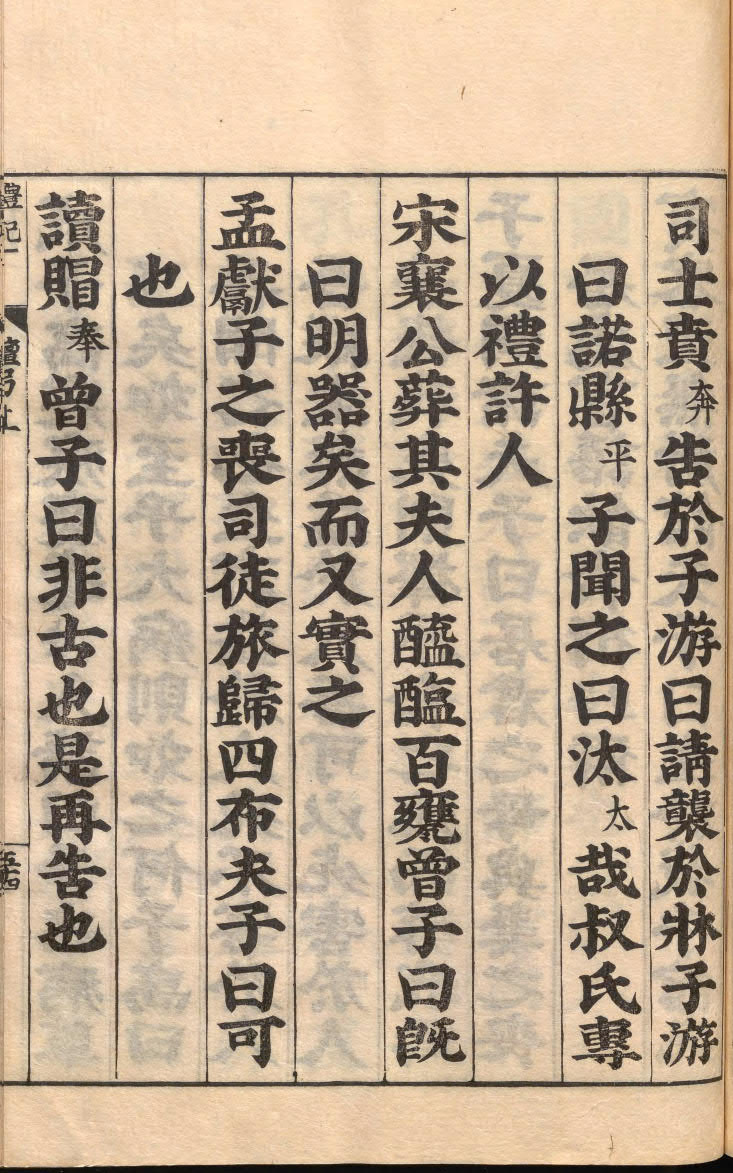 司士賁奔告於子游曰請襲於牀子游
曰諾縣平子聞之曰汰太哉叔氏專
以禮許人
宋襄公葬其夫人醯醢百甕曾子曰旣
曰明器矣而又實之
孟獻子之喪司徒旅歸四布夫子曰可
也
讀賵奉曾子曰非古也是再告也
禮記一 檀弓上 五四